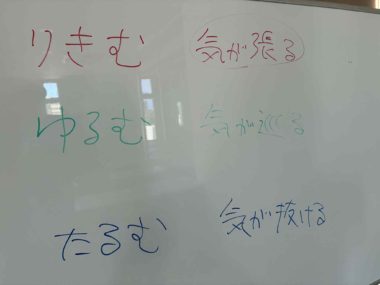 りきむ 気が張る
ゆるむ 気が巡る
たるむ 気が抜ける